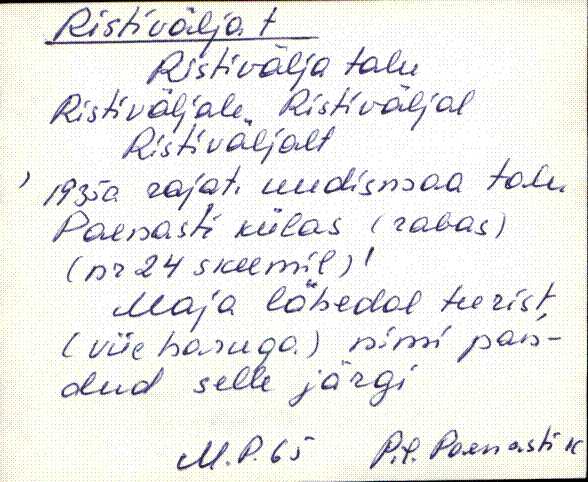 Ristivälja t
Ristivälja talu
Ristiväljale Ristiväljal
Ristiväljalt
1935a rajat. uudismaa talu
Paenasti külas (rabas)
(nr 24 skeemil)!
Maja lähedal teerist
(viie haruga) nimi pan-
dud selle järgi
M.P. 65 Pil. Paenasti k